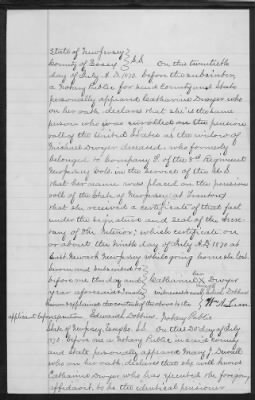 State of New Jersey }
County of Essex } SS On the twentieth
day of July A.D. 1870 before the subscriber
a Notary Public for said County and State
personally appeared Catharine Dwyer who
on her oath declares that she is the same
person who was enrolled on the pension
roll of the United States as the widow of
Michael Dwyer deceased who formerly
belonged to Company of the 8th Regiment
New Jersey Vols in the service of the U.S.
that her name was placed on the pension
roll of the State of New Jersey at Trenton
that she received a certificate of that fact
under the signature and seal of the Secre
tary of the Interior; which certificate on
or about the ninth day of July A.D 1870 at
East Newark New Jersey while going home she lost
Sworn and subscribed to }
before me the day and } Catharine X Dwyer
year aforesaid and } witnesses Edward Dobbins
known & explained the contents of the above to the }
applicant before execution Edward Dobbins Notary Public
State of New Jersey SS. On this 20 day of July
1870 before me a Notary Public in said County
and State personally appeared Mary J.
who on her oath declares that she well knows
Catharine Dwyer who has executed the foregoing
affidavit, to be the identical pensioner